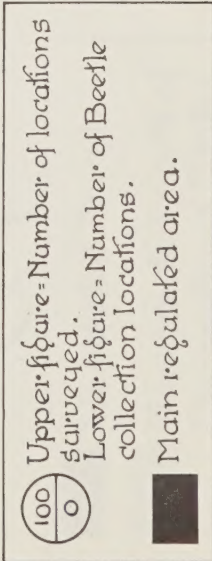 100
0
Upper figure = Number of locations
surveyed.
Lower figure = Number of Beetle
collection locations.
Main regulated area.